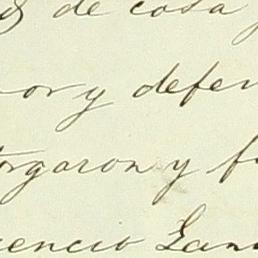 de casa
or y defen
orgaron y f
encio San